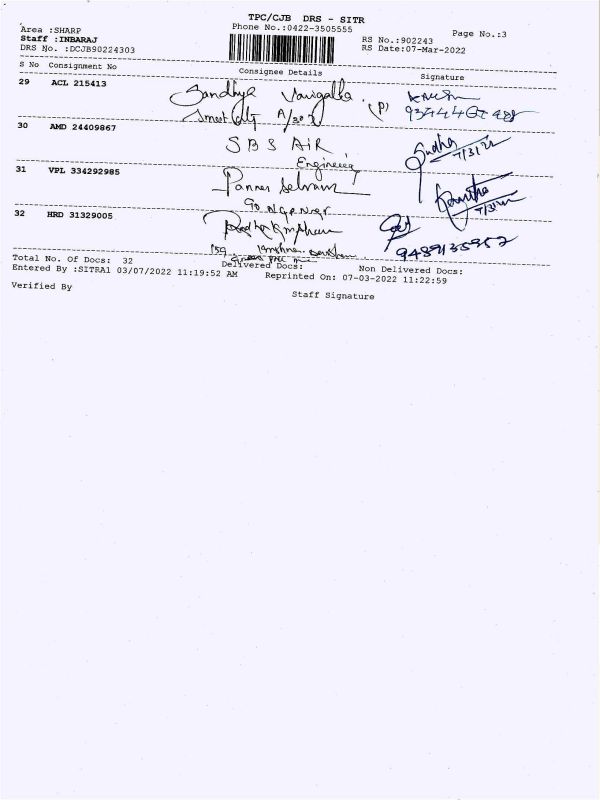 TPC/CJB DRS - SITR
Area :SHARP
Phone No.:0422-3505555
Page No.:3
Staff :INBARAJ
RS No.:902243
DRS No. :DCJB90224303
RS Date:07-Mar-2022
S No Consignment No Consignee Details Signature
29 ACL 215413 Sandhya (P)
Smart City A/307
30 AMD 24409867 SBS AIR Sudha
Engineering 7/3/22
31 VPL 334292985 Panner Selvam
90 7/3/22
32 HRD 31329005
159 9489135952
Total No. Of Docs: 32 Delivered Docs: Non Delivered Docs:
Entered By :SITRA1 03/07/2022 11:19:52 AM Reprinted On: 07-03-2022 11:22:59
Verified By Staff Signature